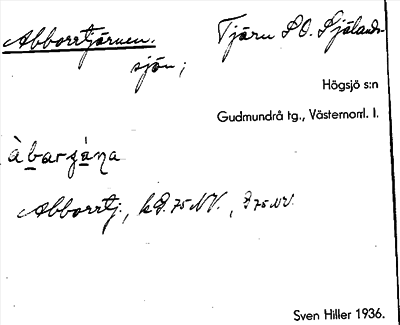 Abborrtjärnen. Tjärn SO. Själands-
sjön;
Högsjö s:n
Gudmundrå tg., Västernorrl. l.
àbarʒána
Abborrtj., kB. 75 NV., J 75 NV.
Sven Hiller 1936.